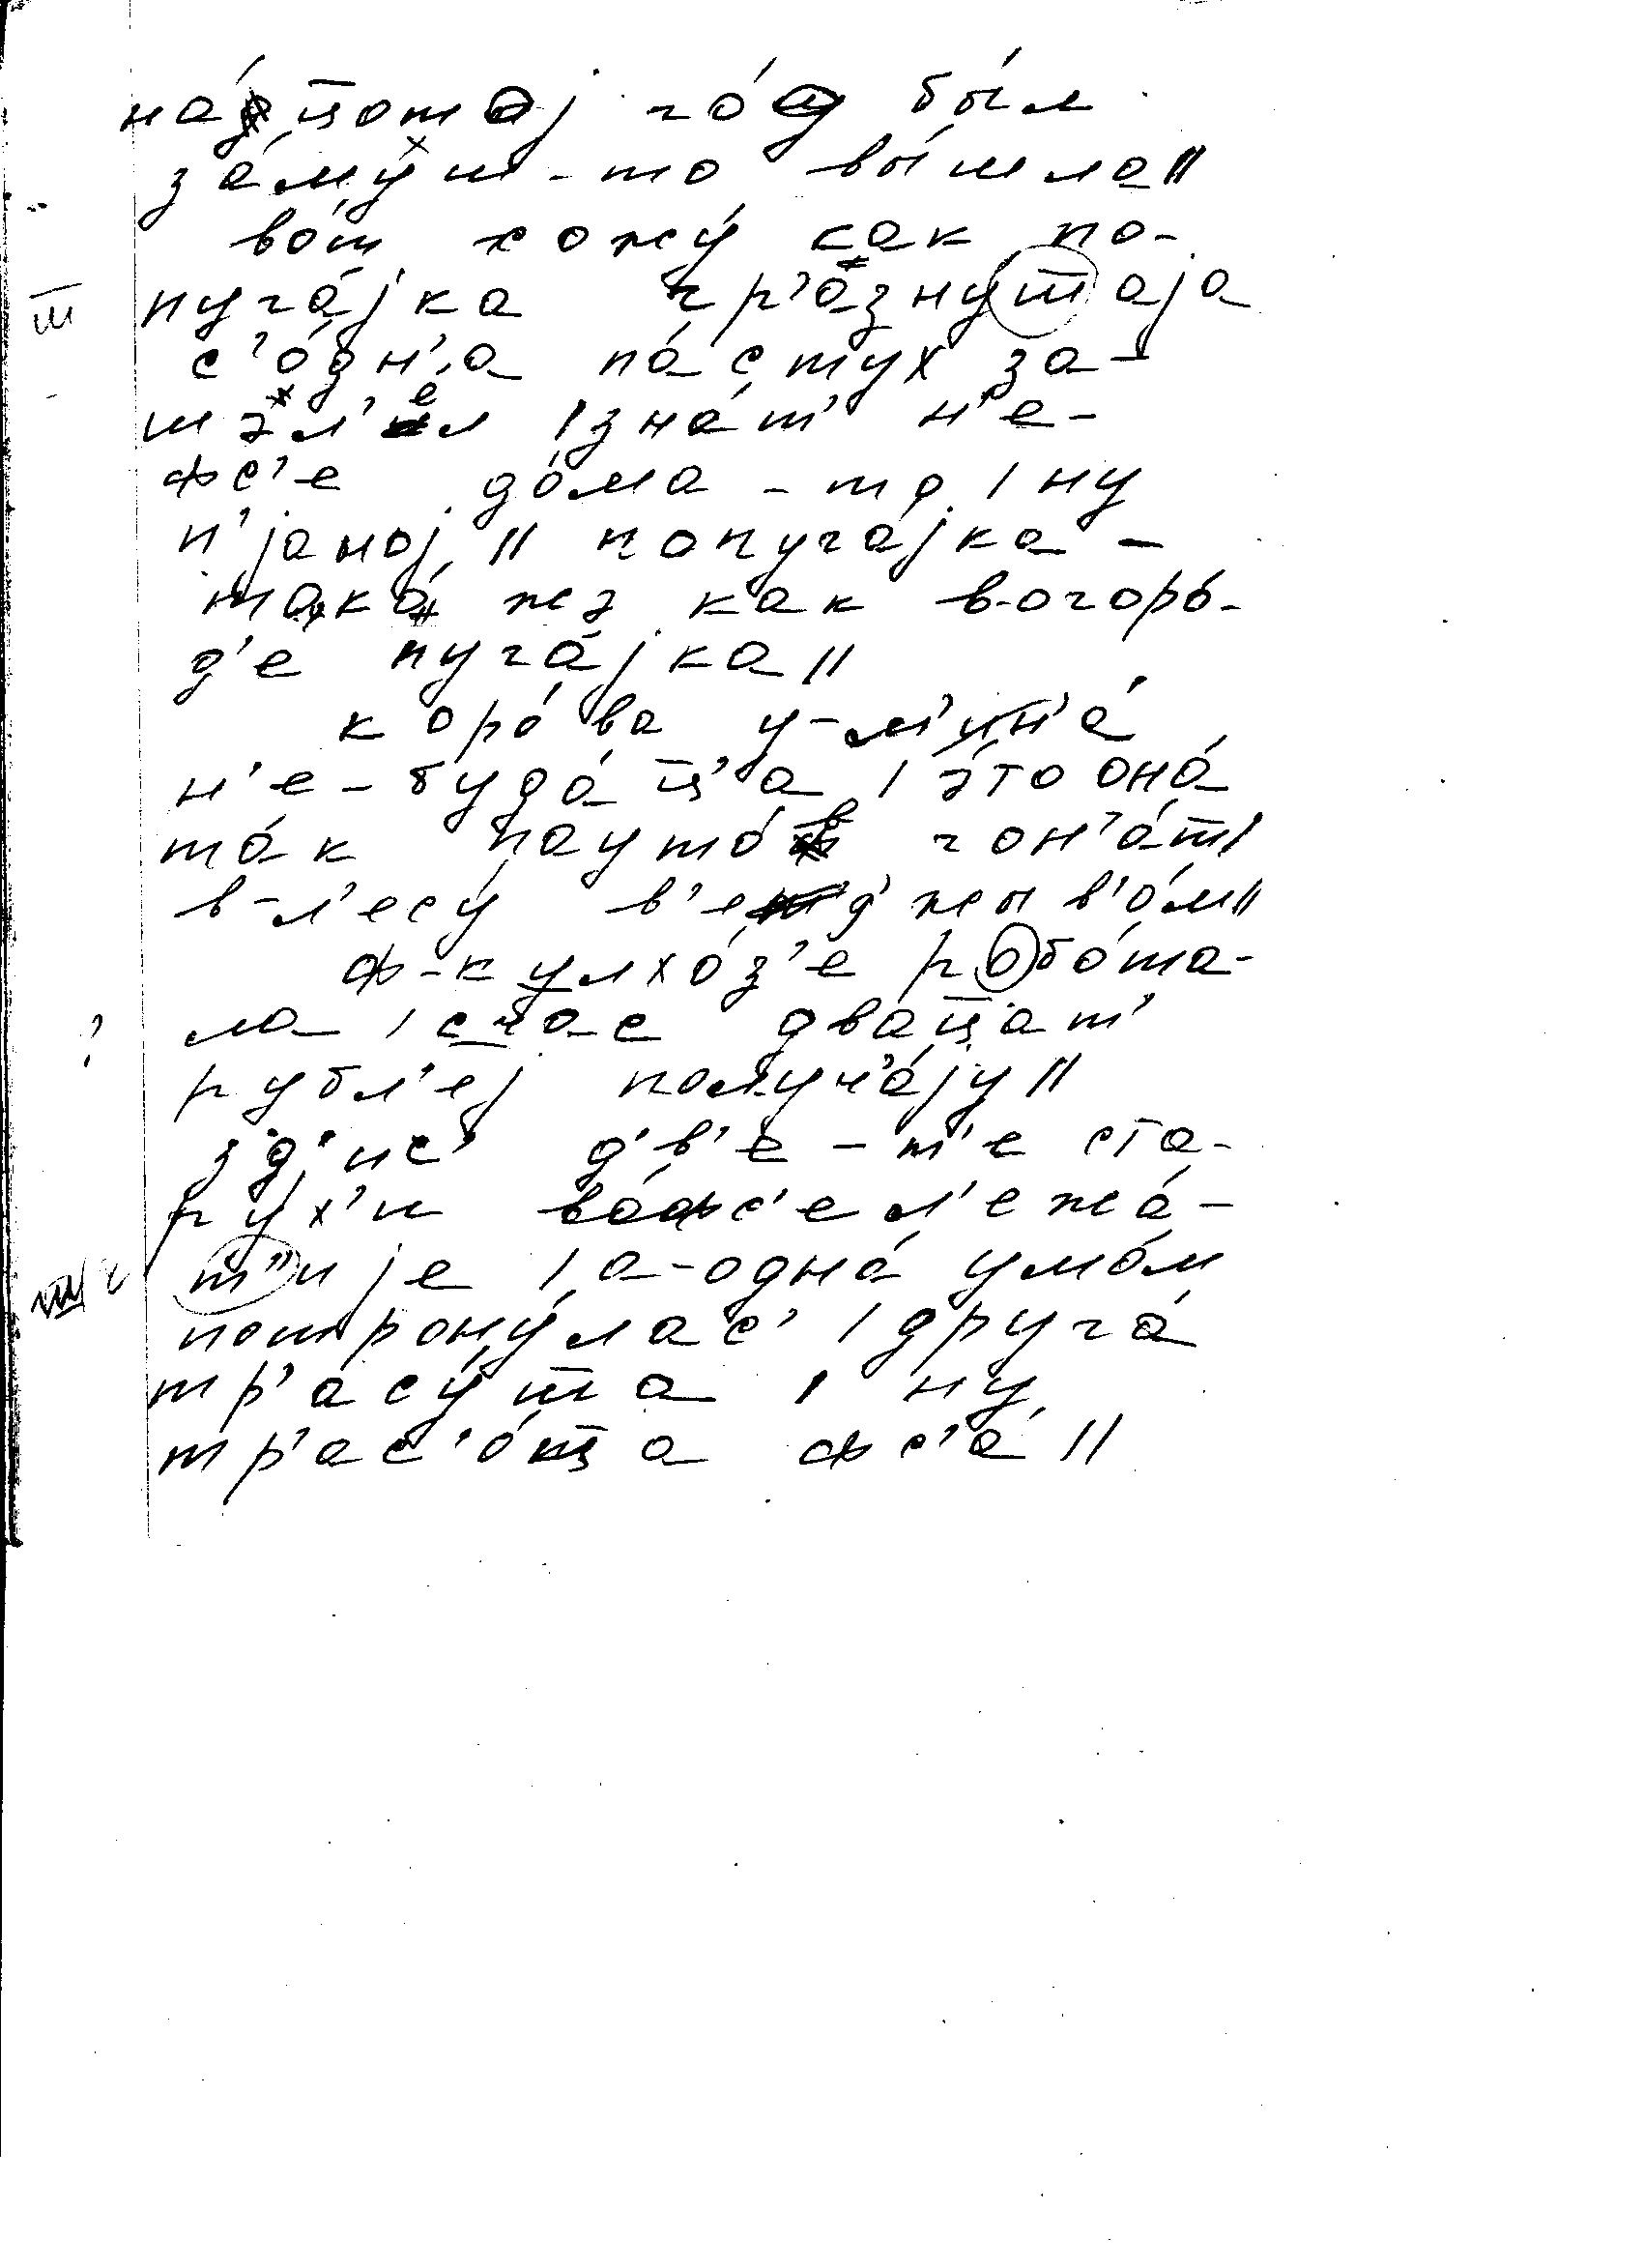 на́ц̅отој го́д бы́л
за́муш-то вы́шла||
во́т хожу́ как по-
пуга́јка гр'а́зну̅т̅аја
с'о́дн'а па́стух за-
шэл'е́л | зна́т' н'е-
фс'е до́ма-то | ну
п'јаној || попуга́јка -
така́ жэ как в-огоро́-
д'е пуга́јка||
коро́ва у-м'ин'а́
н'е-буда́ц̅'а | э́то она́
та́к пауто́в гон'а́т |
в-л'есу́ в'ед' жыв'о́м||
ф-кулхо́з'е робо́та-
ла | счас два́ц̅ат'
рубл'еј получ'а́ју||
з'д'ис' д'в'е-т'е ста-
ру́х'и во́фс'е л'ежа́-
т̅'ије | а-одна́ умо́м
потрону́лас' | друга́
тр'асу́т̅а | ну
тр'ас'о́ц̅а фс'а́ ||